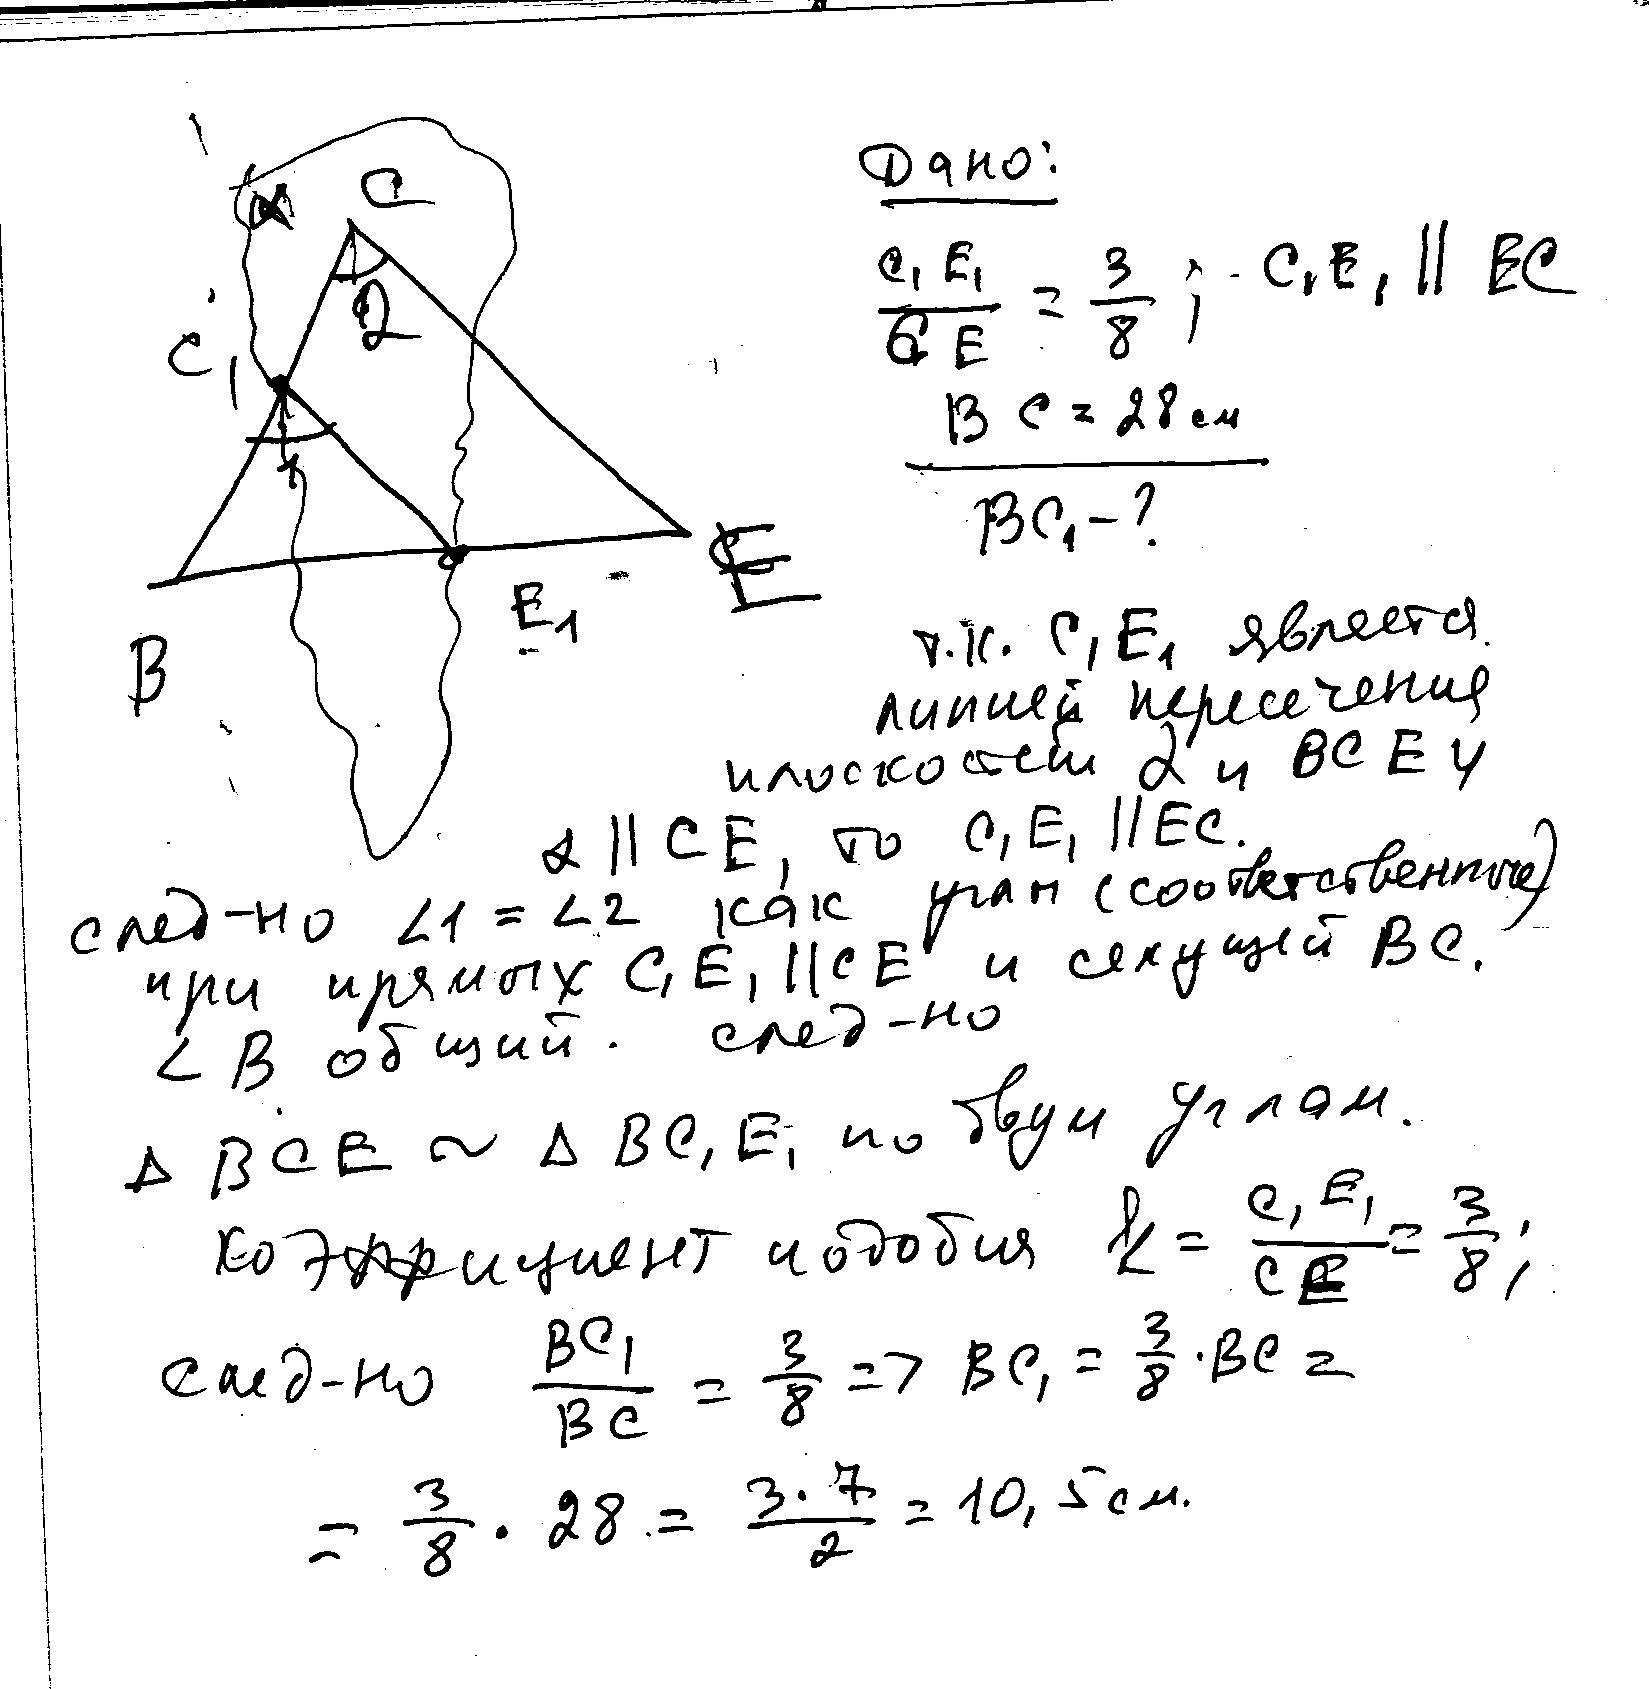 α C
2
C₁
1
B E₁ E
Дано:
C₁E₁/CE = 3/8; C₁E₁ || EC
BC = 28 см
BC₁ - ?
т.к. C₁E₁ является
линией пересечения
плоскостей α и BCE и
α || CE, то C₁E₁ || EC.
след-но ∠1 = ∠2 как углы (соответственные)
при прямых C₁E₁ || CE и секущей BC.
∠B общий. след-но
Δ BCE ~ Δ BC₁E₁ по двум углам.
коэффициент подобия k = C₁E₁/CE = 3/8;
след-но BC₁/BC = 3/8 => BC₁ = 3/8 · BC =
= 3/8 · 28 = 3·7/2 = 10,5 см.